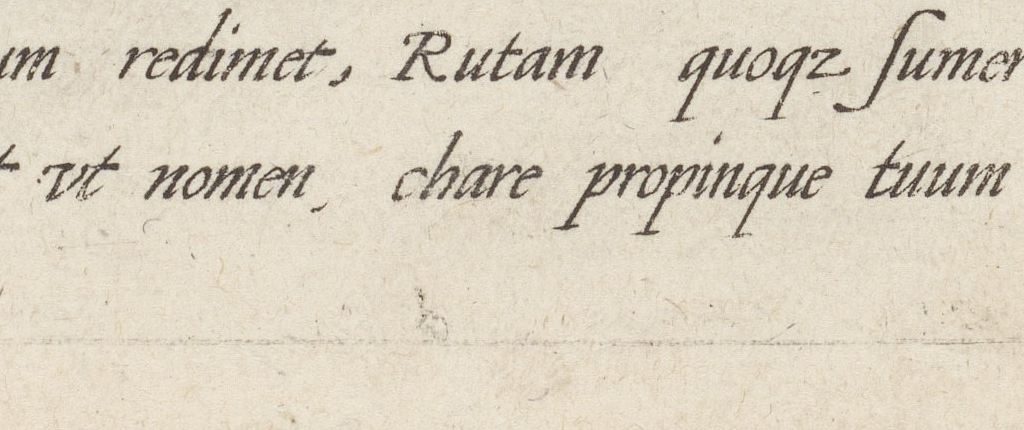 um redimet, Rutam quoqz ſumer
t vt nomen, chare propinque tuum